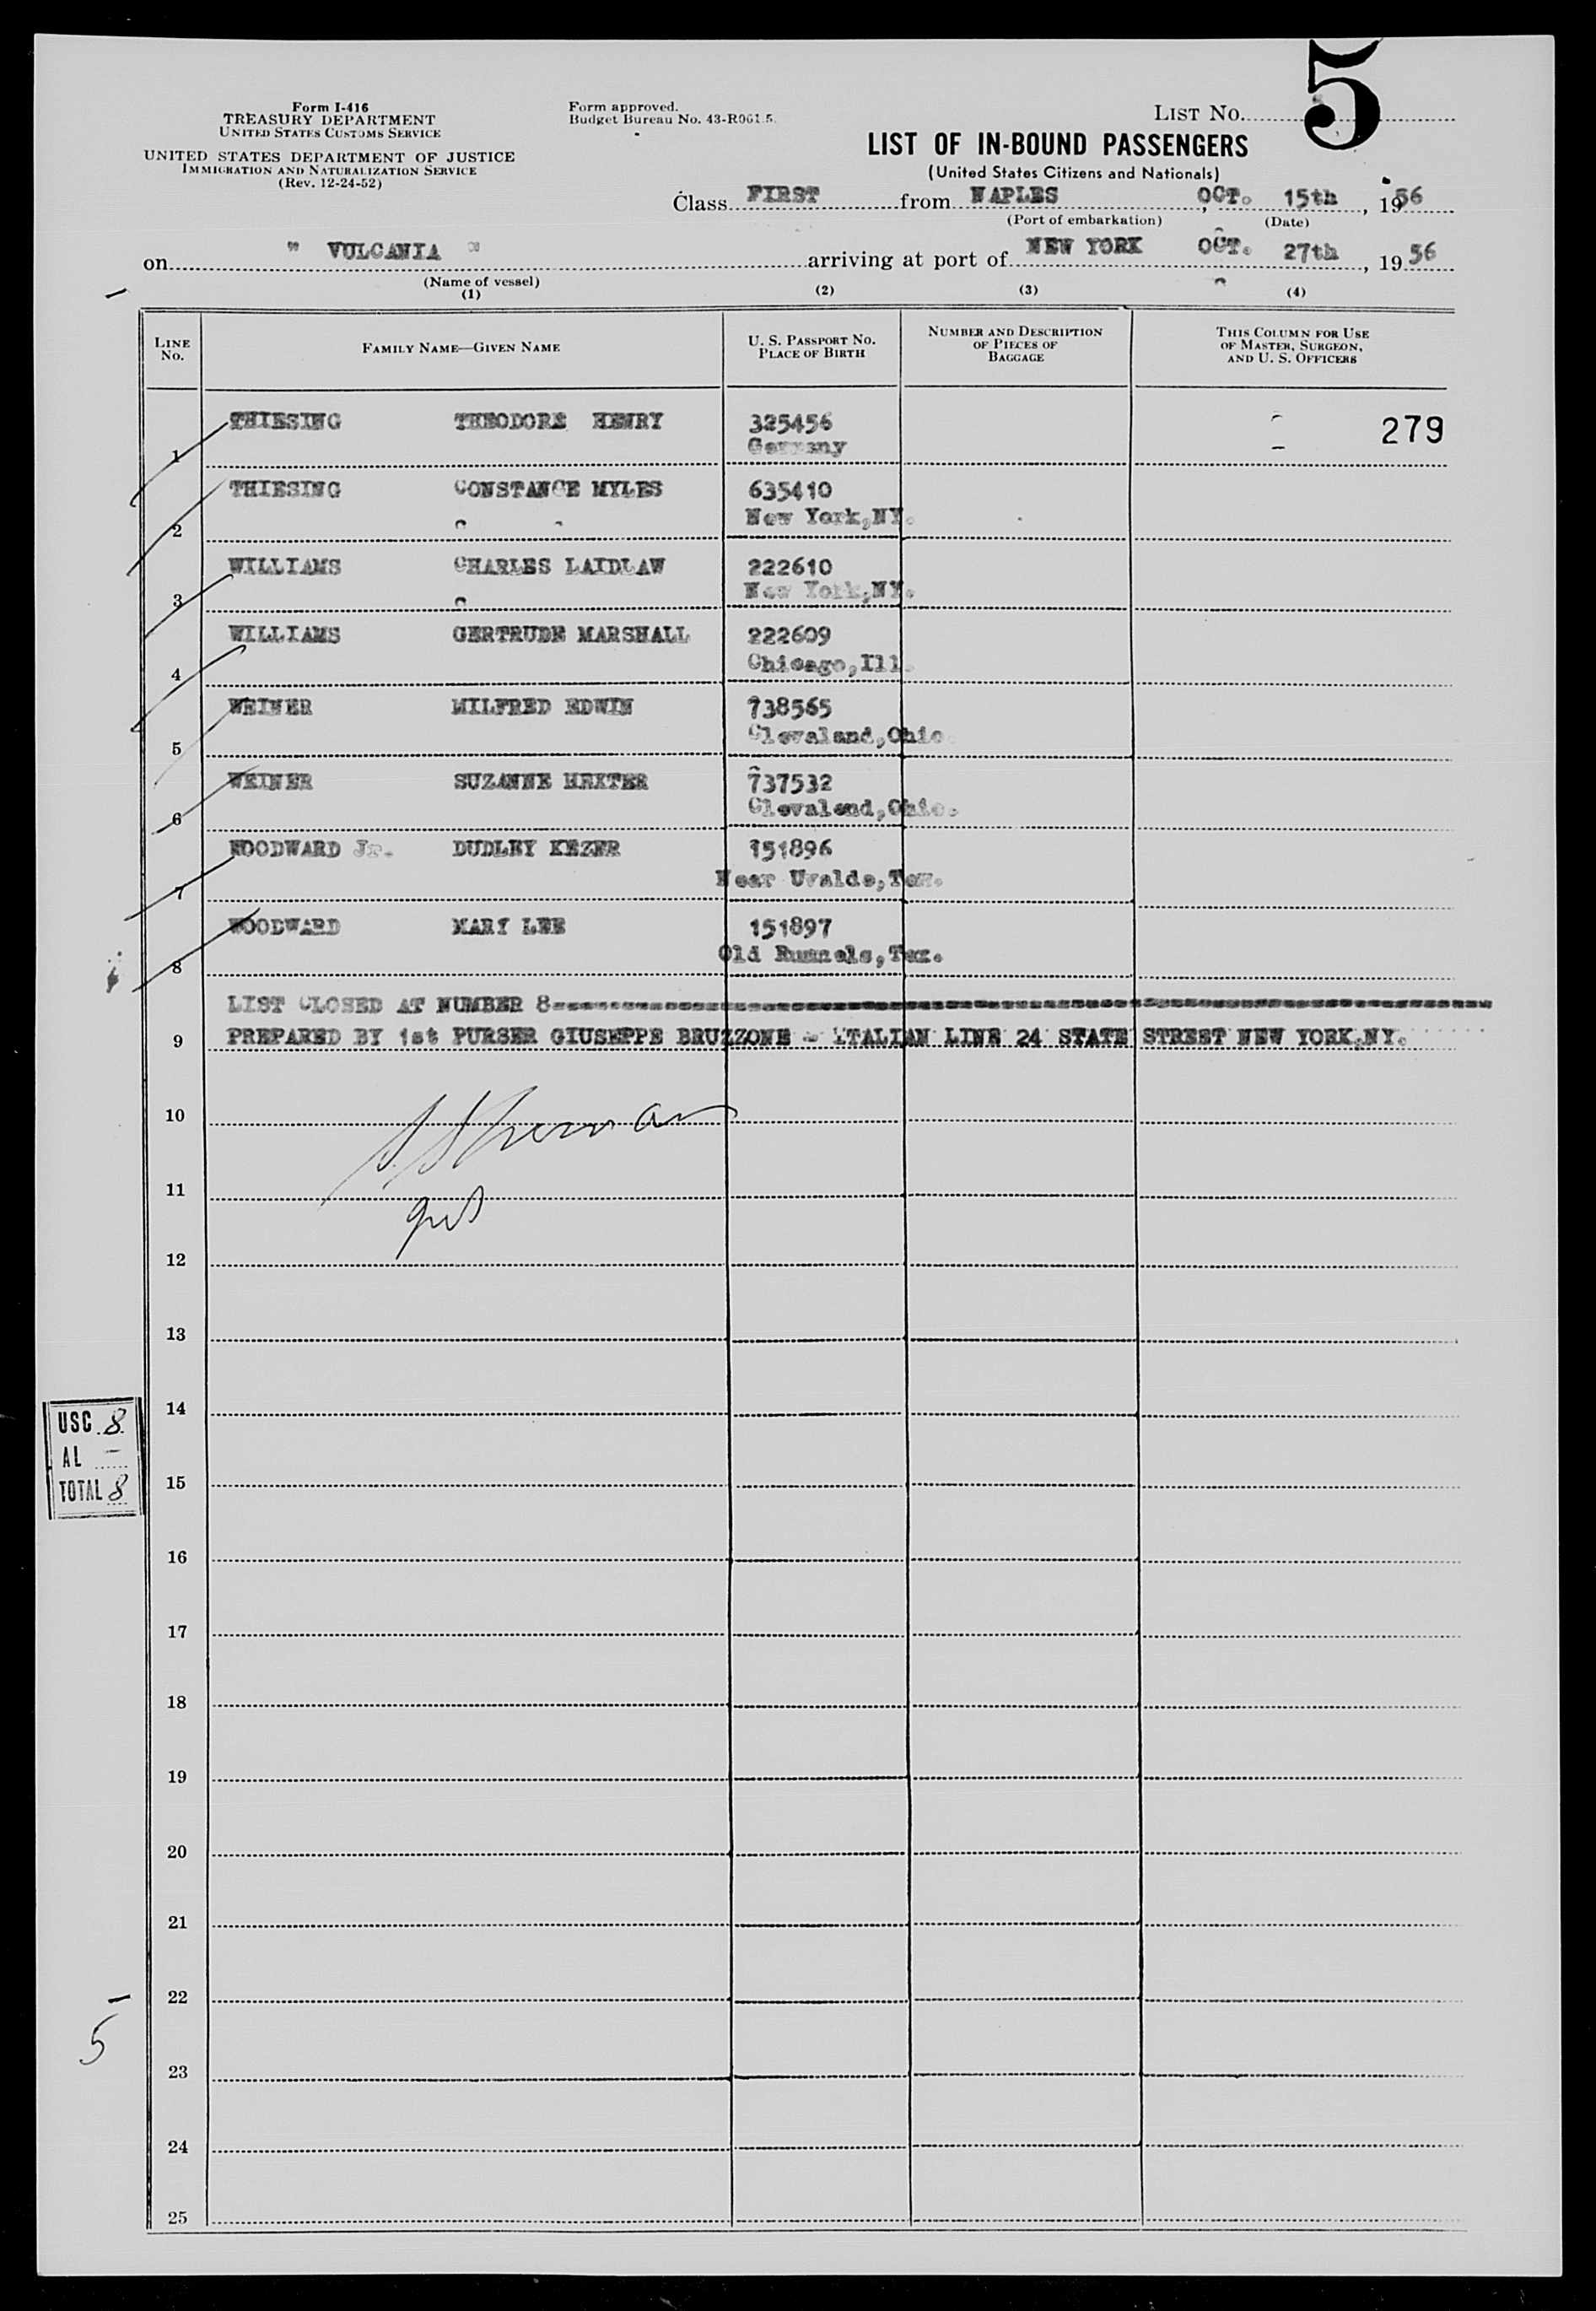 5
Form I-416
TREASURY DEPARTMENT
UNITED STATES CUSTOMS SERVICE
UNITED STATES DEPARTMENT OF JUSTICE
IMMIGRATION AND NATURALIZATION SERVICE
(Rev. 12-24-52)
Form approved.
Budget Bureau No. 43-R061.5.
LIST NO.
LIST OF IN-BOUND PASSENGERS
(United States Citizens and Nationals)
Class FIRST from NAPLES, OCT. 15th, 1956
(Port of embarkation) (Date)
on " VULCANIA " arriving at port of NEW YORK OCT. 27th, 1956
(Name of vessel)
(1) (2) (3) (4)
LINE NO. FAMILY NAME—GIVEN NAME U. S. PASSPORT NO. PLACE OF BIRTH NUMBER AND DESCRIPTION OF PIECES OF BAGGAGE THIS COLUMN FOR USE OF MASTER, SURGEON, AND U. S. OFFICERS
THIESING THEODORE HENRY 325456 279
1 Germany
THIESING CONSTANCE MYLES 635410
2 New York,NY.
WILLIAMS CHARLES LAIDLAW 222610
3 New York,NY.
WILLIAMS GERTRUDE MARSHALL 222609
4 Chicago,Ill.
WEINER MILFRED EDWIN 738565
5 Clevaland,Ohio
WEINER SUZANNE HEXTER 737532
6 Clevaland,Ohio.
WOODWARD Jr. DUDLEY KEZER 151896
7 Near Uvalde,Tex.
WOODWARD MARY LEE 151897
8 Old Runnels,Tex.
LIST CLOSED AT NUMBER 8
9 PREPARED BY 1st PURSER GIUSEPPE BRUZZONE - ITALIAN LINE 24 STATE STREET NEW YORK,NY.
10
11
12
13
14
USC 8
AL —
TOTAL 8
15
16
17
18
19
20
21
22
5
23
24
25